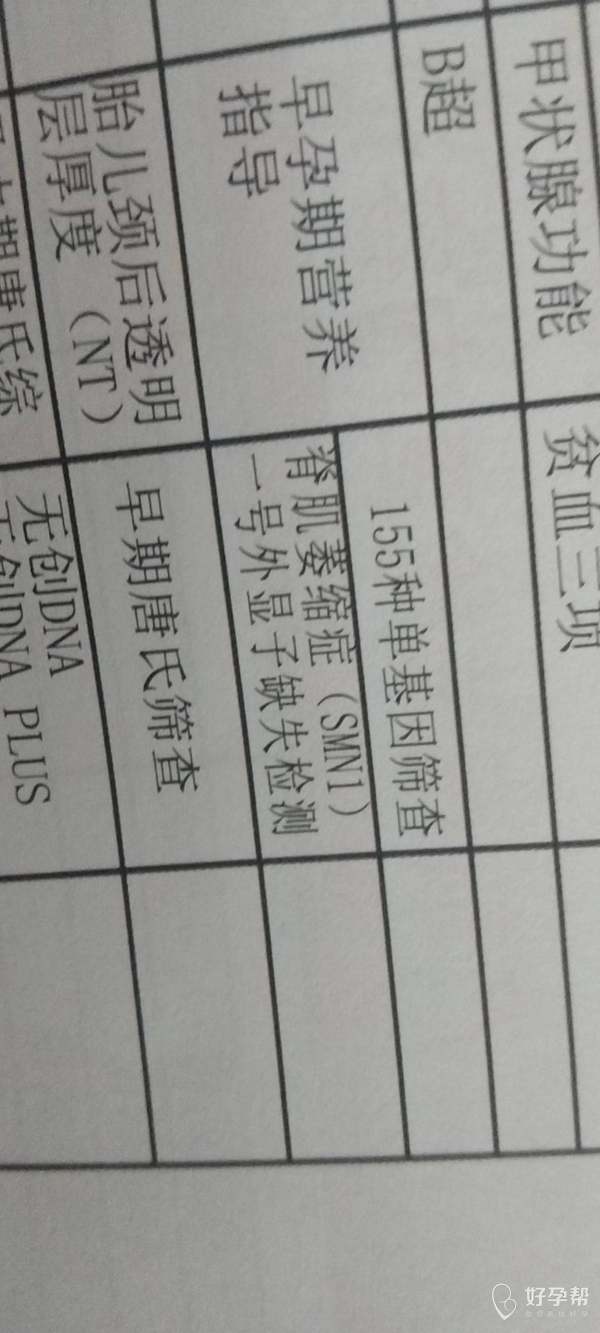 甲状腺功能
贫血三项
B超
早孕期营养
指导
155种单基因筛查
脊肌萎缩症(SMN1)
一号外显子缺失检测
胎儿颈后透明
层厚度(NT)
早期唐氏筛查
期唐氏综
无创DNA
无创DNA PLUS
好孕帮